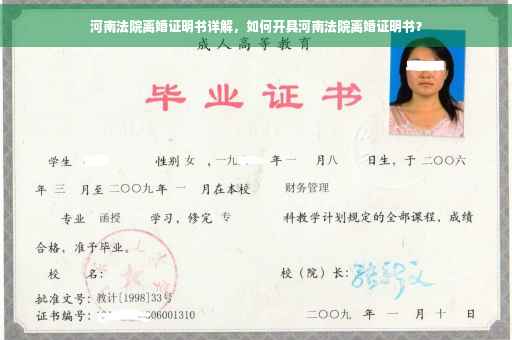 河南法院离婚证明书详解，如何开具河南法院离婚证明书？
成人高等教育
毕业证书
学生 性别 女 ，一九 年 一 月八 日生，于 二〇〇六
年 三 月至 二〇〇九 年 一 月在本校 财务管理
专业 函授 学习，修完 专 科教学计划规定的全部课程，成绩
合格，准予毕业。
校 名： 校（院）长：
批准文号：教计[1998]33号
证书编号： 06001310 二〇〇九 年 一 月 十 日